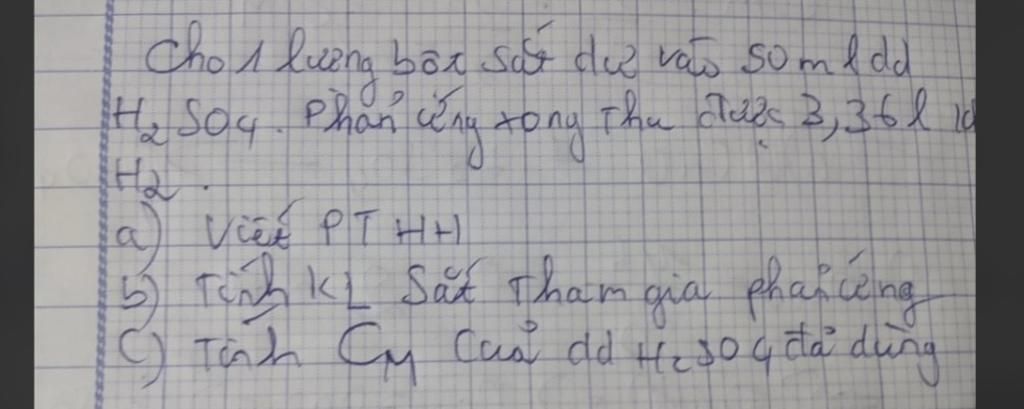 Cho 1 lượng bột sắt dư vào 50 ml dd
H2SO4. Phản ứng xong thu được 3,36 l
H2.
a) Viết PTHH
b) Tính KL Sắt tham gia phản ứng
c) Tính CM của dd H2SO4 đã dùng